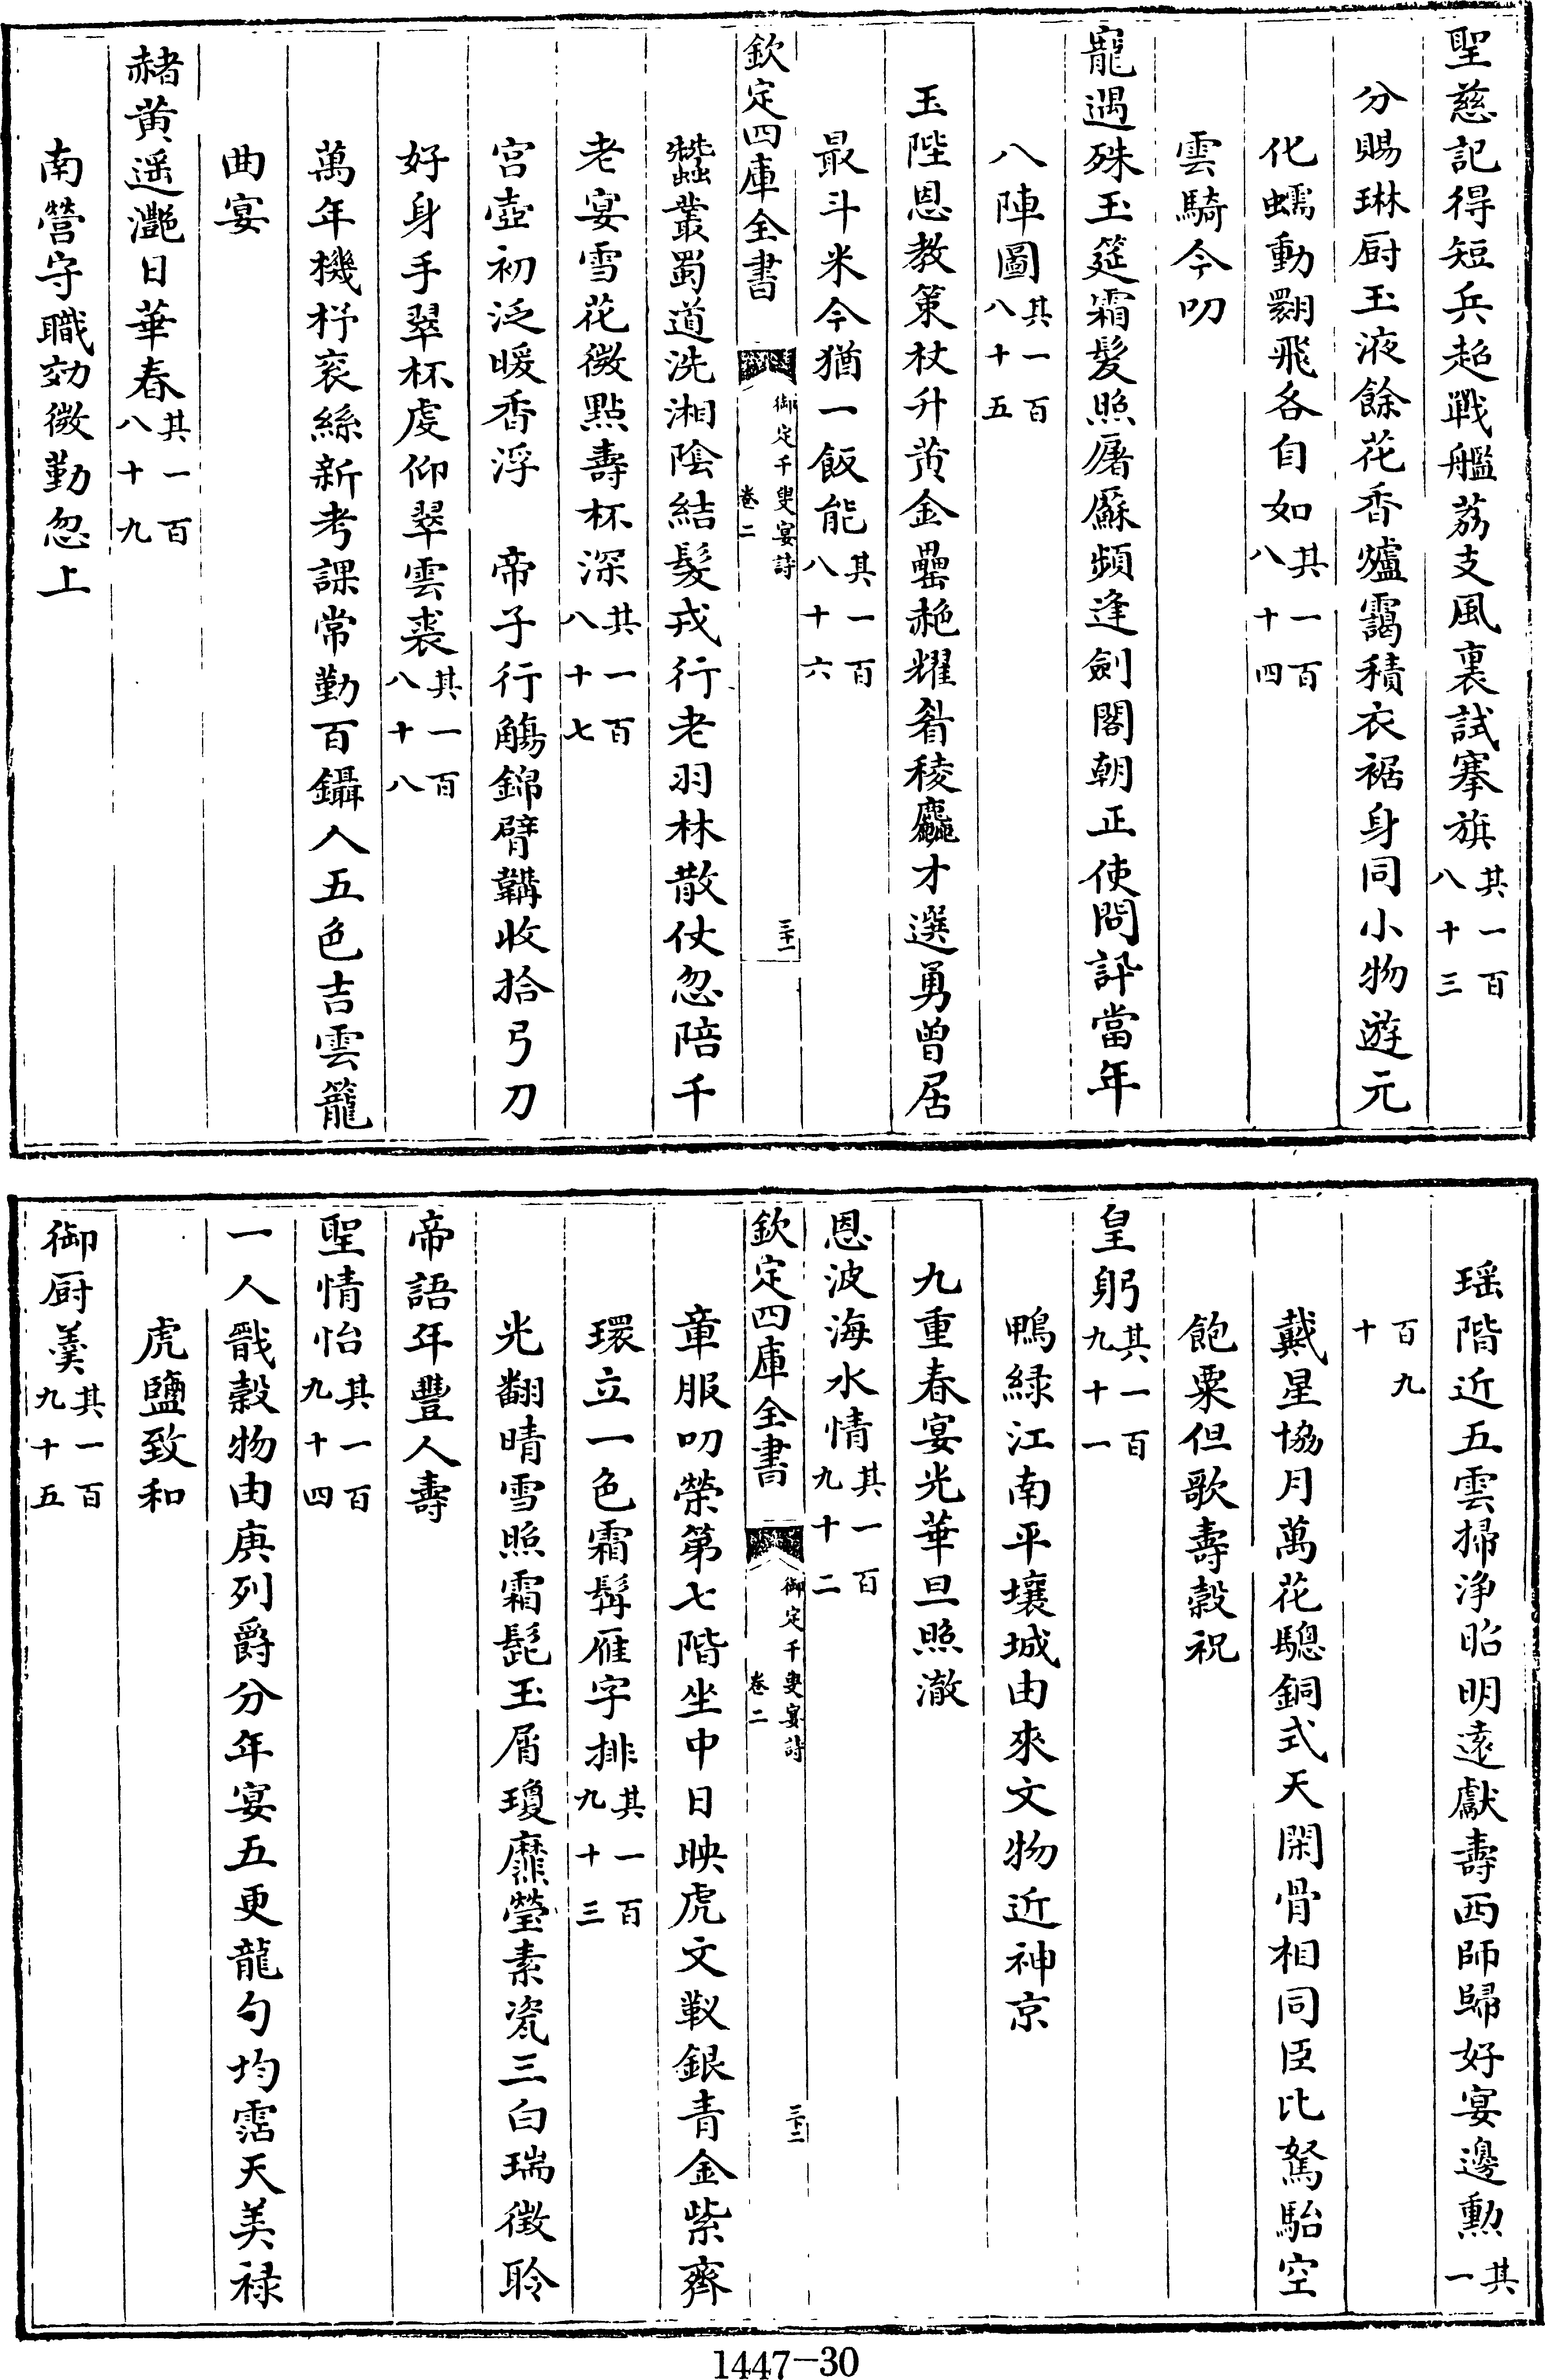 聖慈記得短兵超戰艦荔支風裏試搴旗其一百八十三
分賜琳厨玉液餘花香爐靄積衣裾身同小物遊元
化蠕動翾飛各自如其一百八十四
雲騎今叨
寵遇殊玉筵霜髮照屠蘇頻逢劍閣朝正使問訊當年
八陣圖其一百八十五
玉陛恩教策杖升黄金罍赩耀觴稜麤才選勇曾居
最斗米今猶一飯能其一百八十六
欽定四庫全書 御定千叟宴詩 卷二 三十一
蠶叢蜀道洗湘陰結髮戎行老羽林散仗忽陪千
老宴雪花微點壽杯深其一百八十七
宮壺初泛暖香浮 帝子行觴錦臂韝收拾弓刀
好身手翠杯虔仰翠雲裘其一百八十八
萬年機杼衮絲新考課常勤百鑷人五色吉雲籠
曲宴
赭黄遥灔日華春其一百八十九
南營守職効微勤忽上
瑶階近五雲掃浄昭明遠獻壽西師歸好宴邊勳其一
百九十
戴星協月萬花驄銅式天閑骨相同臣比駑駘空
飽粟但歌壽榖祝
皇躬其一百九十一
鴨緑江南平壤城由來文物近神京
九重春宴光華旦照澈
恩波海水情其一百九十二
欽定四庫全書 御定千叟宴詩 卷二 三十二
章服叨榮第七階坐中日映虎文靫銀青金紫齊
環立一色霜髯雁字排其一百九十三
光翻晴雪照霜髭玉屑瓊糜瑩素瓷三白瑞徵聆
帝語年豐人壽
聖情怡其一百九十四
一人戩榖物由庚列爵分年宴五更龍勺均霑天美禄
虎鹽致和
御厨羮其一百九十五
1447-30